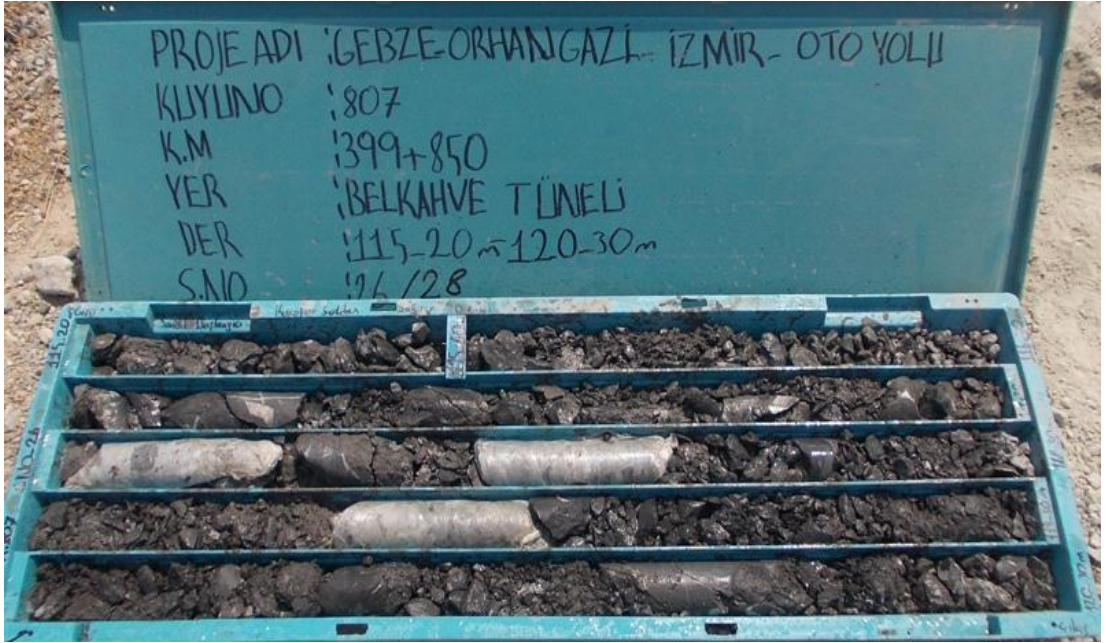 PROJE ADI :GEBZE-ORHANGAZİ- İZMİR- OTO YOLU
KUYUNO :807
K.M :399+850
YER :BELKAHVE TÜNELİ
DER :115-20m-120-30m
S.NO :26/28
115.20